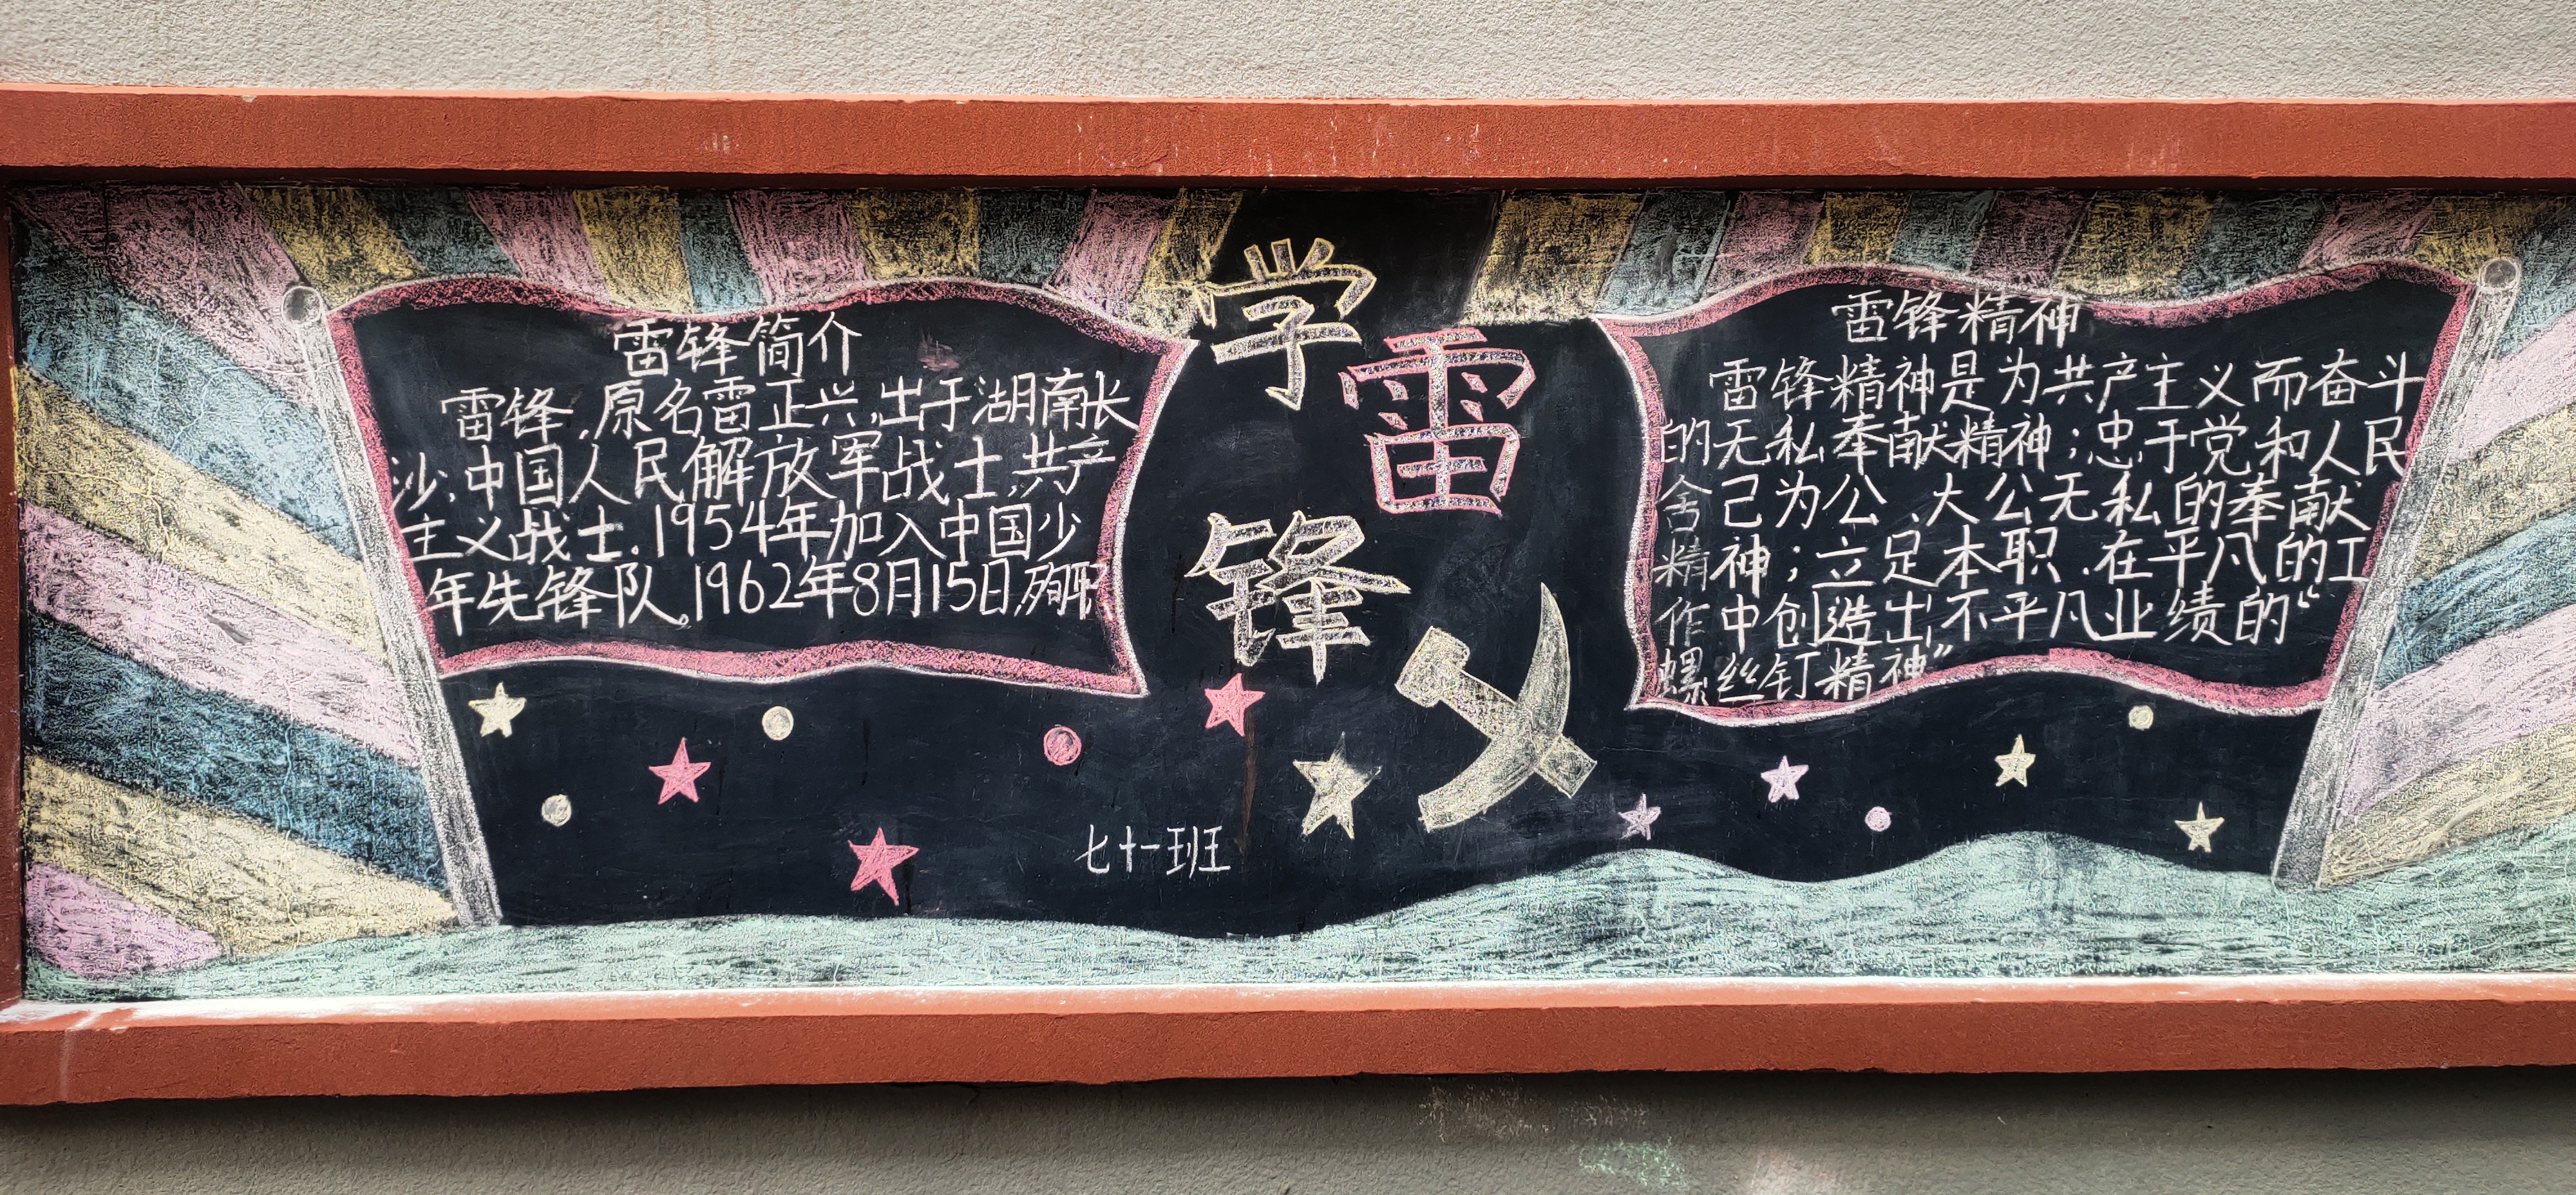 雷锋简介
雷锋,原名雷正兴,出于湖南长
沙,中国人民解放军战士,共产
主义战士,1954年加入中国少
年先锋队。1962年8月15日,殉职
学
雷
锋
七十一班
雷锋精神
雷锋精神是为共产主义而奋斗
的无私奉献精神;忠于党和人民
舍己为公、大公无私的奉献
精神;立足本职,在平凡的工
作中创造出不平凡业绩的“
螺丝钉精神”